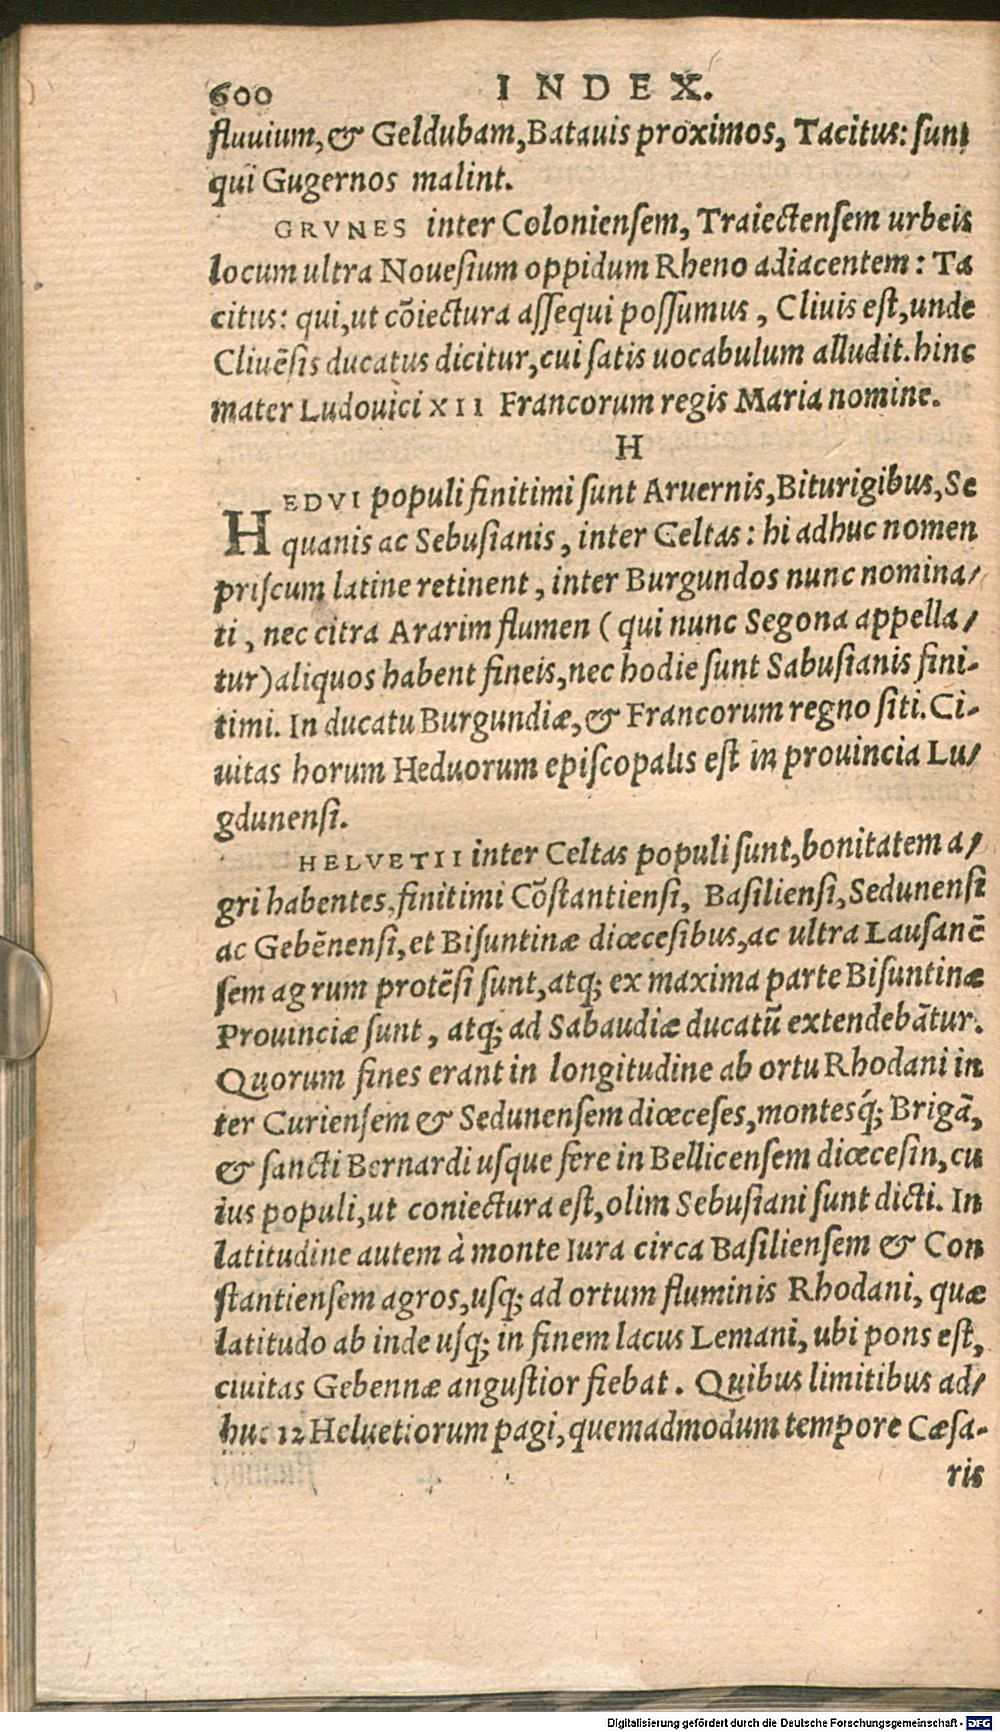 600 INDEX.
fluuium,& Geldubam,Batauis proximos, Tacitus: ſunt
qui Gugernos malint.
GRVNES inter Colonienſem, Traiectenſem urbeis
locum ultra Noueſium oppidum Rheno adiacentem: Ta
citus: qui,ut cõiectura aſſequi poſſumus, Cliuis eſt,unde
Cliuẽſis ducatus dicitur,cui ſatis uocabulum alludit.hinc
mater Ludouici XII Francorum regis Maria nomine.
H
HEDVI populi finitimi ſunt Aruernis,Biturigibus,Se
quanis ac Sebuſianis, inter Celtas: hi adhuc nomen
priſcum latine retinent, inter Burgundos nunc nomina/
ti, nec citra Ararim flumen (qui nunc Segona appella/
tur)aliquos habent fineis,nec hodie ſunt Sabuſianis fini-
timi. In ducatu Burgundiæ,& Francorum regno ſiti. Ci-
uitas horum Heduorum epiſcopalis eſt in prouincia Lu/
gdunenſi.
HELVETII inter Celtas populi ſunt,bonitatem a/
gri habentes,finitimi Cõſtantienſi, Baſilienſi,Sedunenſi
ac Gebẽnenſi,et Biſuntinæ diœceſibus,ac ultra Lauſanẽ
ſem agrum protẽſi ſunt,atq; ex maxima parte Biſuntinæ
Prouinciæ ſunt, atq; ad Sabaudiæ ducatũ extendebãtur.
Quorum fines erant in longitudine ab ortu Rhodani in
ter Curienſem & Sedunenſem diœceſes,montesq́; Brigã,
& ſancti Bernardi uſque fere in Bellicenſem diœceſin,cu
ius populi,ut coniectura eſt,olim Sebuſiani ſunt dicti. In
latitudine autem à monte Iura circa Baſilienſem & Con
ſtantienſem agros,uſq; ad ortum fluminis Rhodani, quæ
latitudo ab inde uſq; in finem lacus Lemani, ubi pons eſt,
ciuitas Gebennæ anguſtior fiebat. Quibus limitibus ad/
huc 12 Heluetiorum pagi,quemadmodum tempore Cæſa-
ris
Digitalisierung gefördert durch die Deutsche Forschungsgemeinschaft - DFG